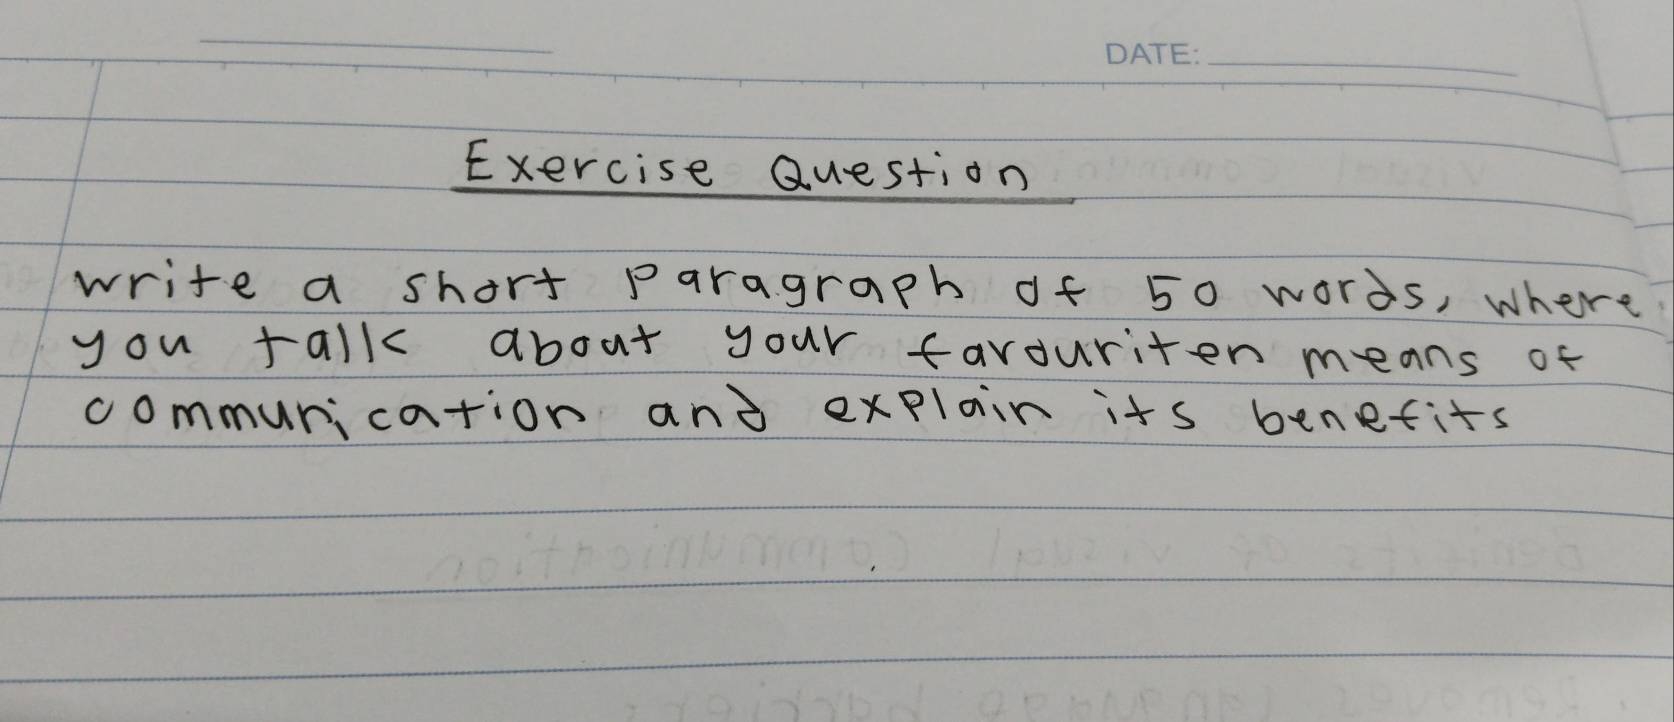 DATE:
Exercise Question
write a short paragraph of 50 words, where
you talk about your favouriten means of
communication and explain its benefits